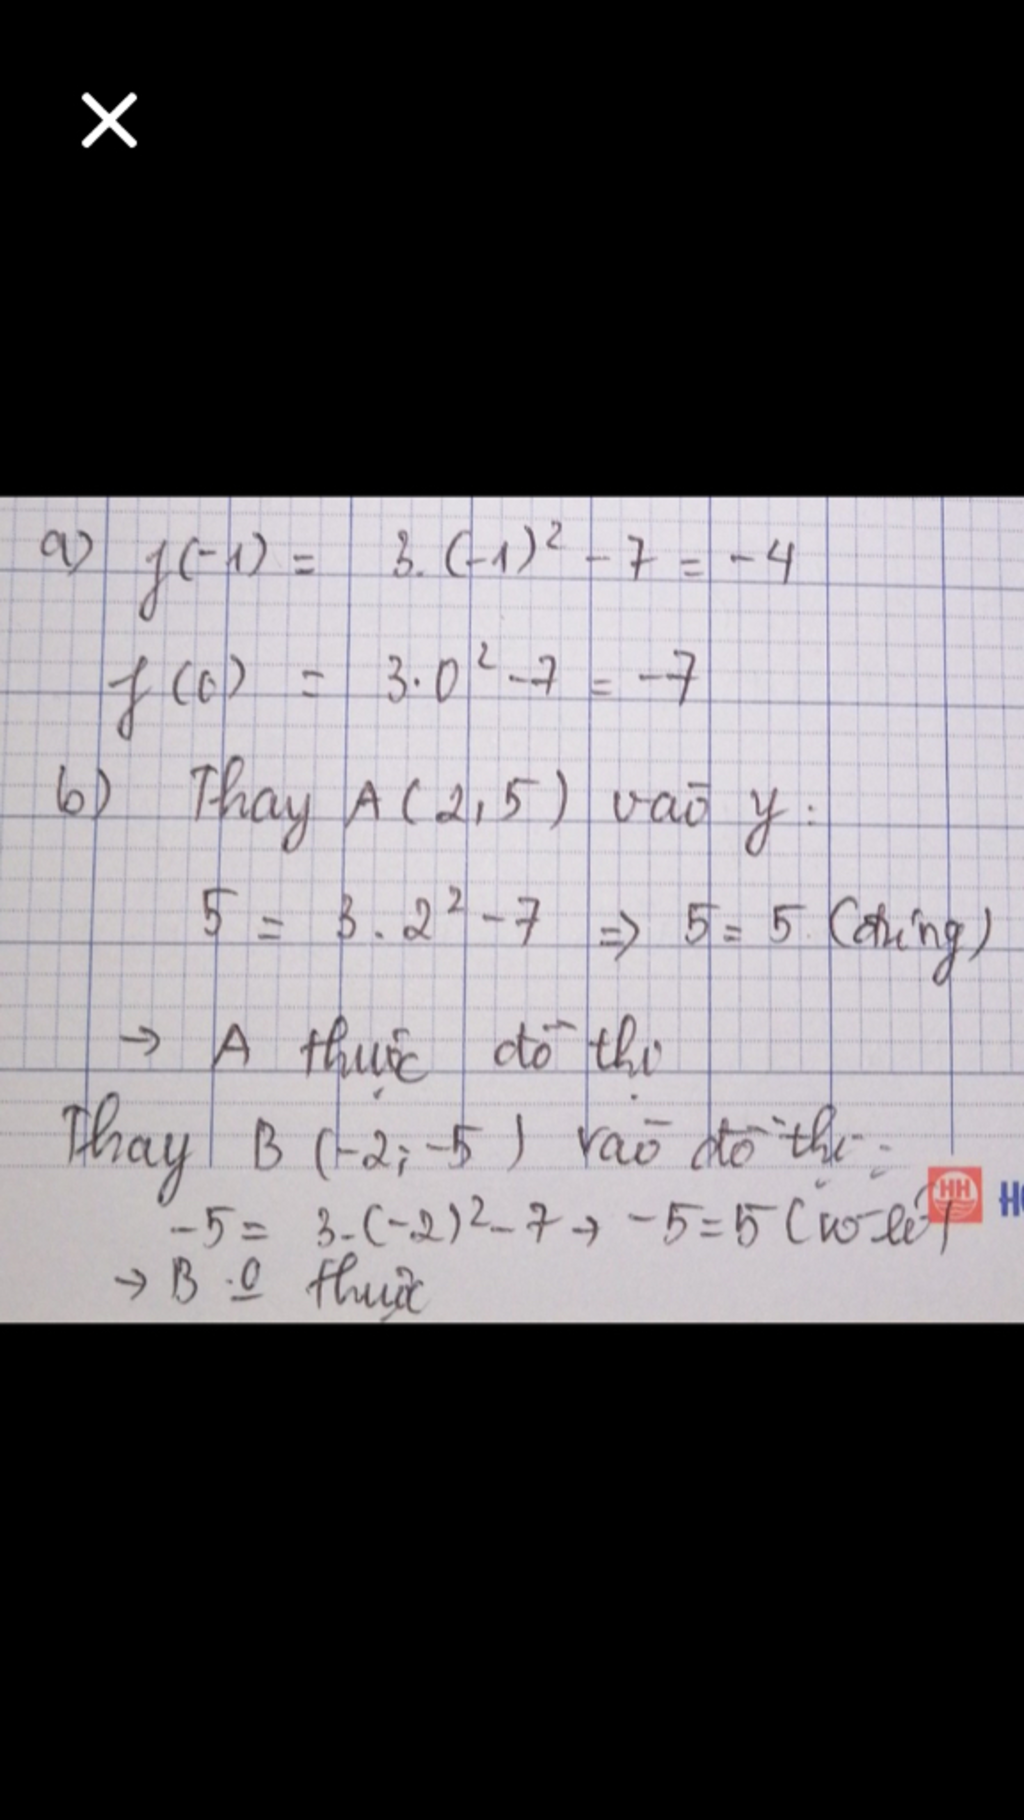 a) f(-1) = 3.(-1)² - 7 = -4
f(0) = 3.0² - 7 = -7
b) Thay A(2,5) vào y:
5 = 3.2² - 7 => 5 = 5 (đúng)
→ A thuộc đồ thị
Thay B (-2; -5) vào đồ thị:
-5 = 3.(-2)² - 7 → -5 = 5 (vô lí)
→ B ∙0 thuộc
HH